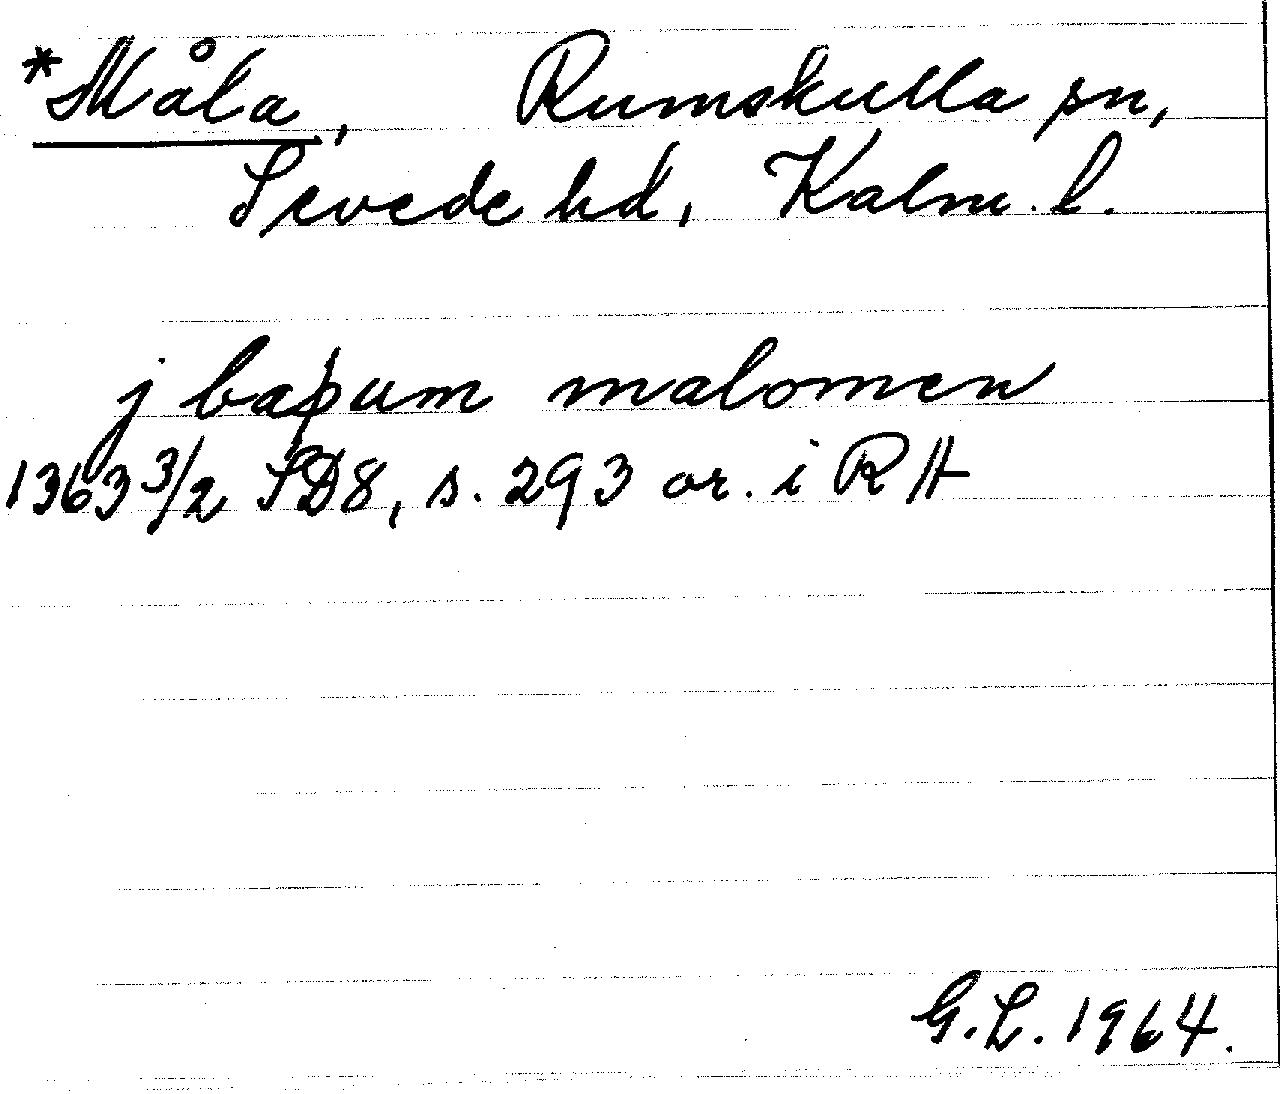 *Måla, Rumskulla sn,
Sevede hd, Kalm. l.
j baþum malomen
1363 3/2 SD8, s. 293 or. i RA
G.L. 1964.